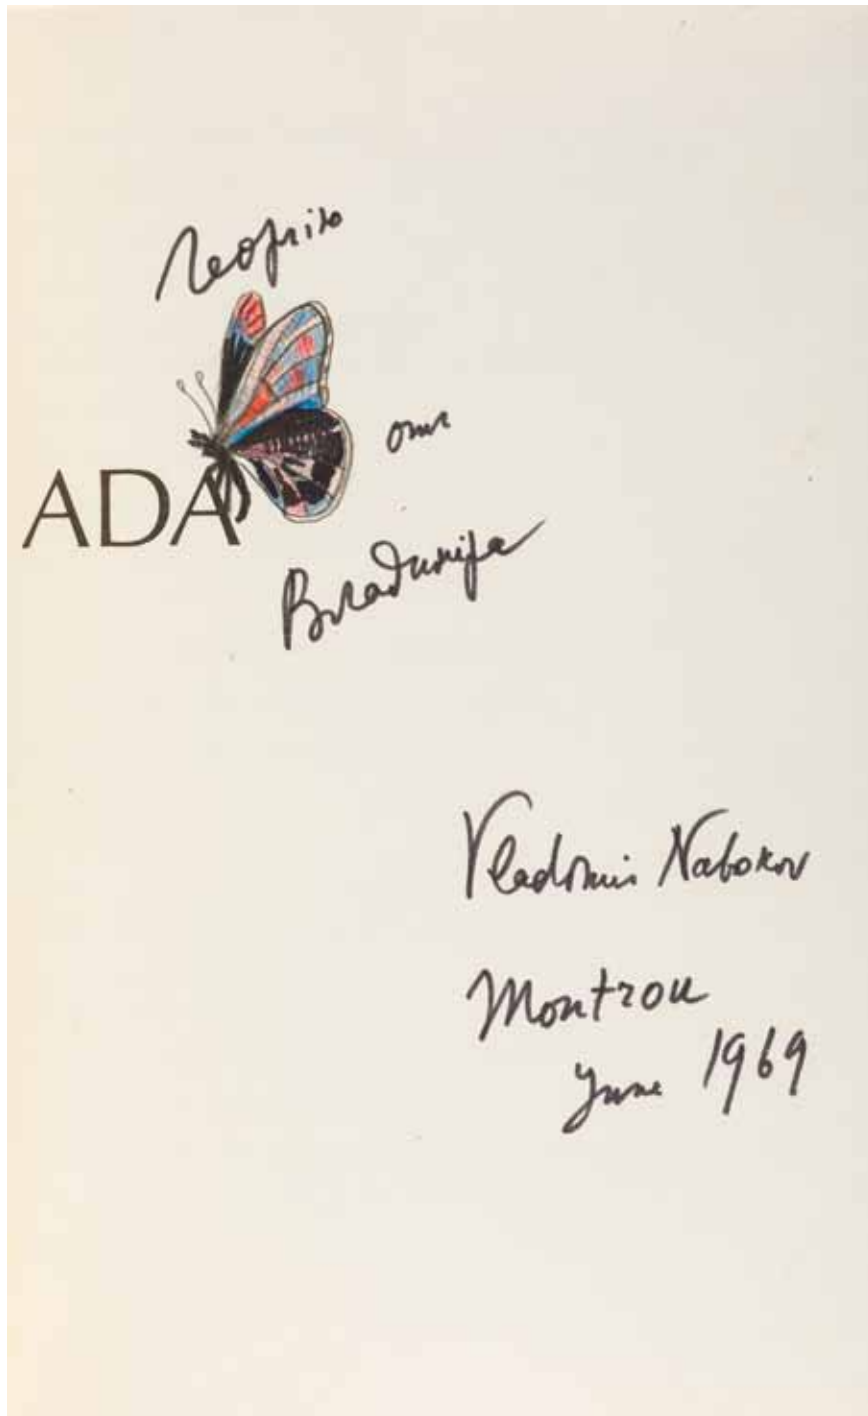 Георгію
ADA
отъ
Владиміра
Vladimir Nabokov
Montreux
June 1969